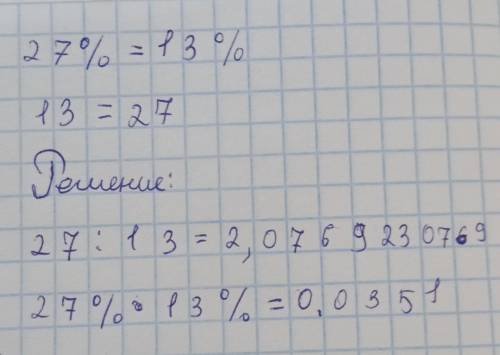 27% = 13%
13 = 27
Решение:
27 : 13 = 2,0769230769
27% · 13% = 0,0351